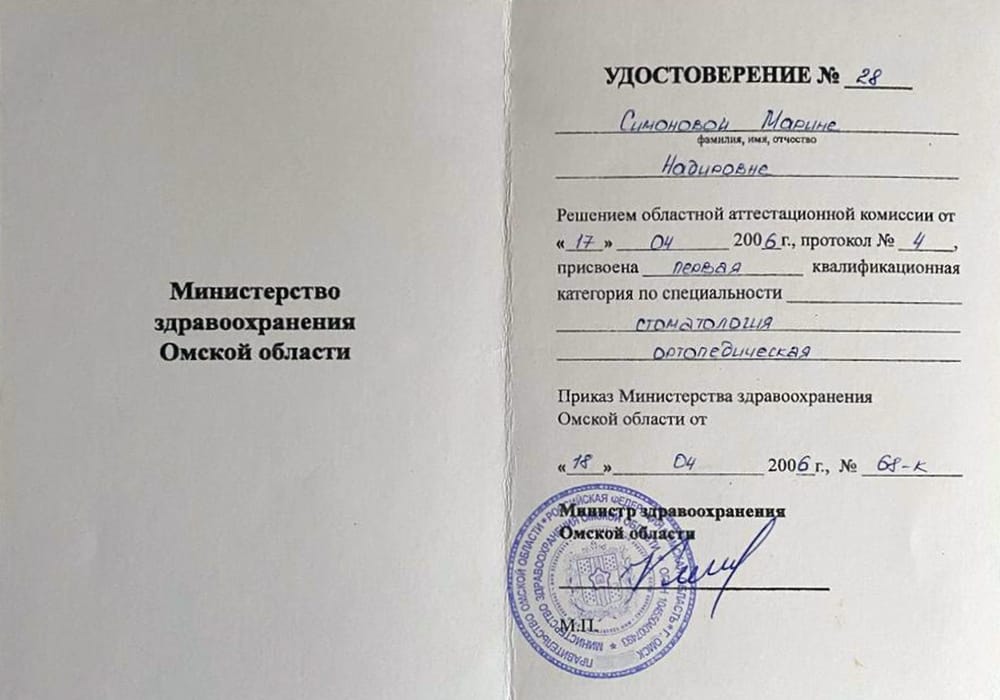 Министерство
здравоохранения
Омской области
УДОСТОВЕРЕНИЕ № 28
Симоновой Марине
фамилия, имя, отчество
Надировне
Решением областной аттестационной комиссии от
« 17 » 04 2006 г., протокол № 4,
присвоена первая квалификационная
категория по специальности
стоматология
ортопедическая
Приказ Министерства здравоохранения
Омской области от
« 18 » 04 2006 г., № 68-к
Министр здравоохранения
Омской области
М.П.
ПРАВИТЕЛЬСТВО ОМСКОЙ ОБЛАСТИ • РОССИЙСКАЯ ФЕДЕРАЦИЯ ОМСКАЯ ОБЛАСТЬ • Г. ОМСК
МИНИСТЕРСТВО ЗДРАВООХРАНЕНИЯ ОМСКОЙ ОБЛАСТИ